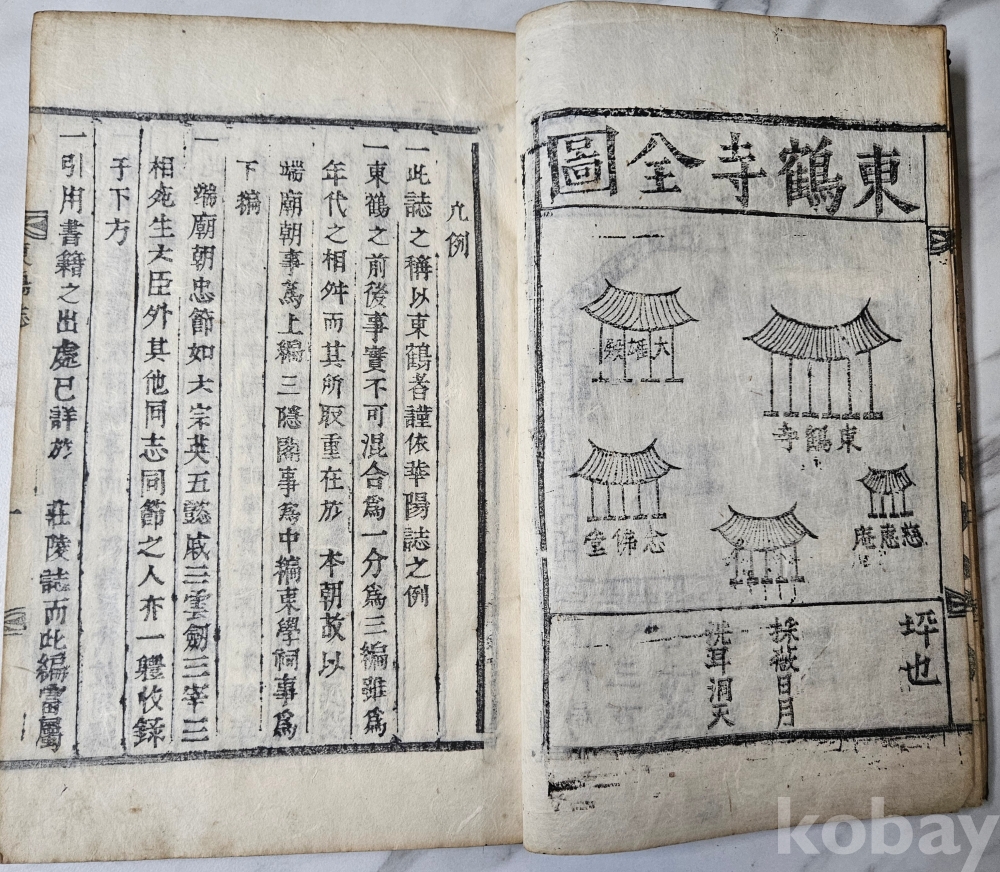 東鶴寺全圖
大雄殿
東鶴寺
念佛堂
慈應庵
坪也
採薇日月
洗耳洞天
凡例
一此誌之稱以東鶴者謹依華陽誌之例
一東鶴之前後事實不可混合爲一分爲三編雖爲
年代之相舛而其所取重在於 本朝故以
端廟朝事爲上編三隱閣事爲中編東學祠事爲
下編
一 端廟朝忠節如六宗英五懿戚三雲劒三宰三
相死生六臣外其他同志同節之人亦一軆收錄
于下方
一引用書籍之出處已詳於 莊陵誌而此編屬
一
kobay